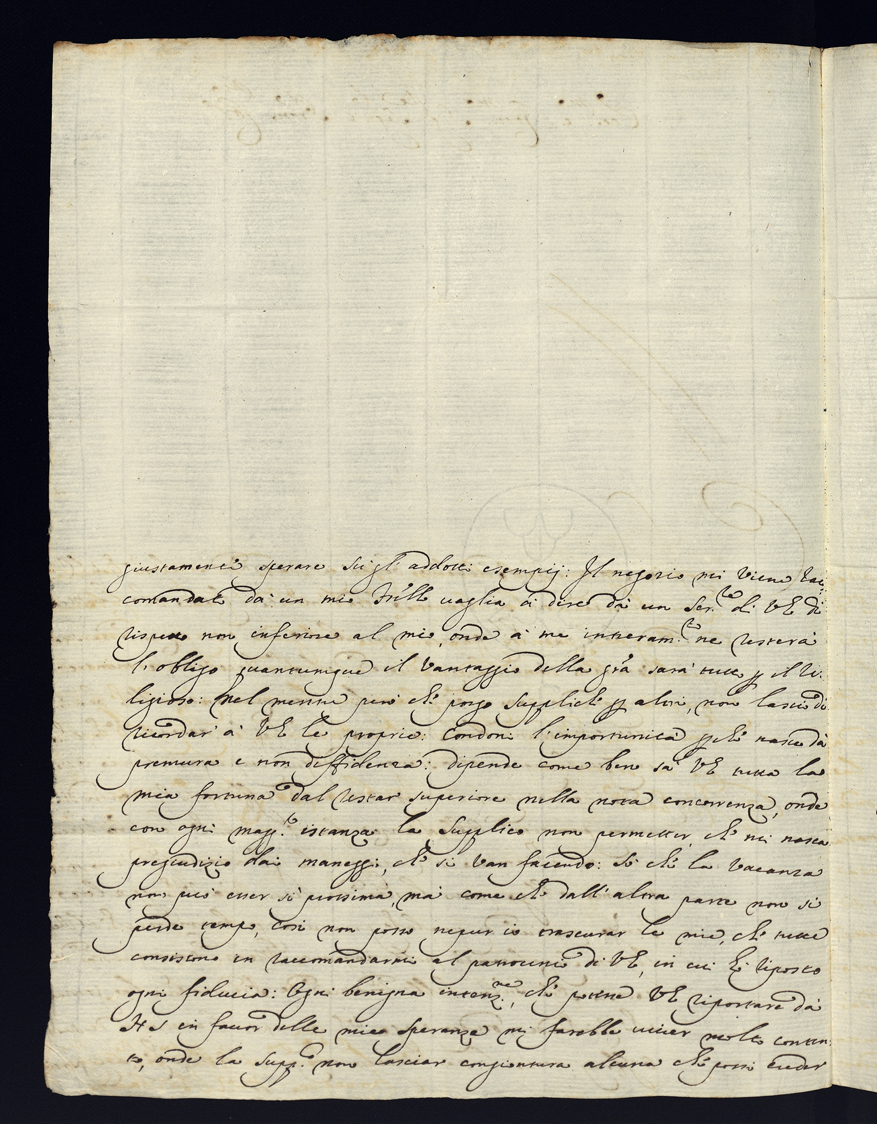 giustamente sperare sugl'addotti esempij: Il negozio mi viene rac-
comandato da un mio frãllo vaglia à dire da un Ser.re di VE di
rispetto non inferiore al mio, onde à me interam.te ne resterà
l'obligo quantunque il vantaggio della grã sarà tutto il re-
ligioso: Nel mentre però che porgo suppliche altri, non lascio di
ricordar' à VE le proprie: Condoni l'importunità che nasce da
premura e non diffidenza: dipende come ben sà VE tutta la
mia fortuna dal restar superiore nella nota concorrenza, onde
con ogni magg.re istanza la supplico non permetter, che mi nasca
pregiudizio dai maneggi, che si van facendo: Sò che la vacanza
non può esser si prossima, mà come che dall'altra parte non si
perde tempo, così non posso nepur io trascurar le mie, che tutte
consistono in raccomandarmi al patrocinio di VE, in cui hò riposto
ogni fiducia: Ogni benigna intenz.ne, che potesse VE riportare da
NS in favor delle mie speranze mi farebbe viver molto conten-
to, onde la supp.co non lasciar congiontura alcuna che possi creder